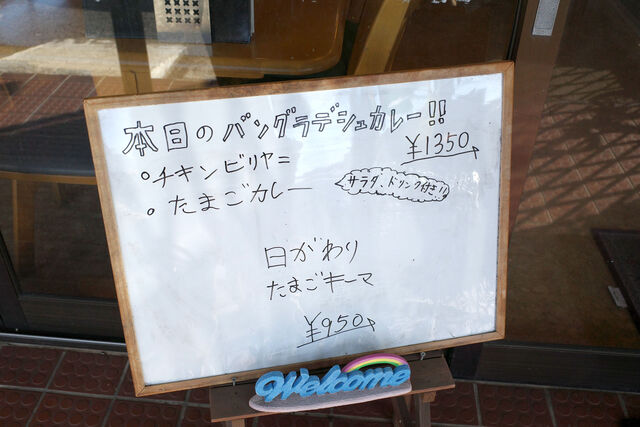 本日のバングラデシュカレー!!
¥1350
・チキンビリヤニ
・たまごカレー
サラダ、ドリンク付き!!
日がわり
たまごキーマ
¥950
Welcome